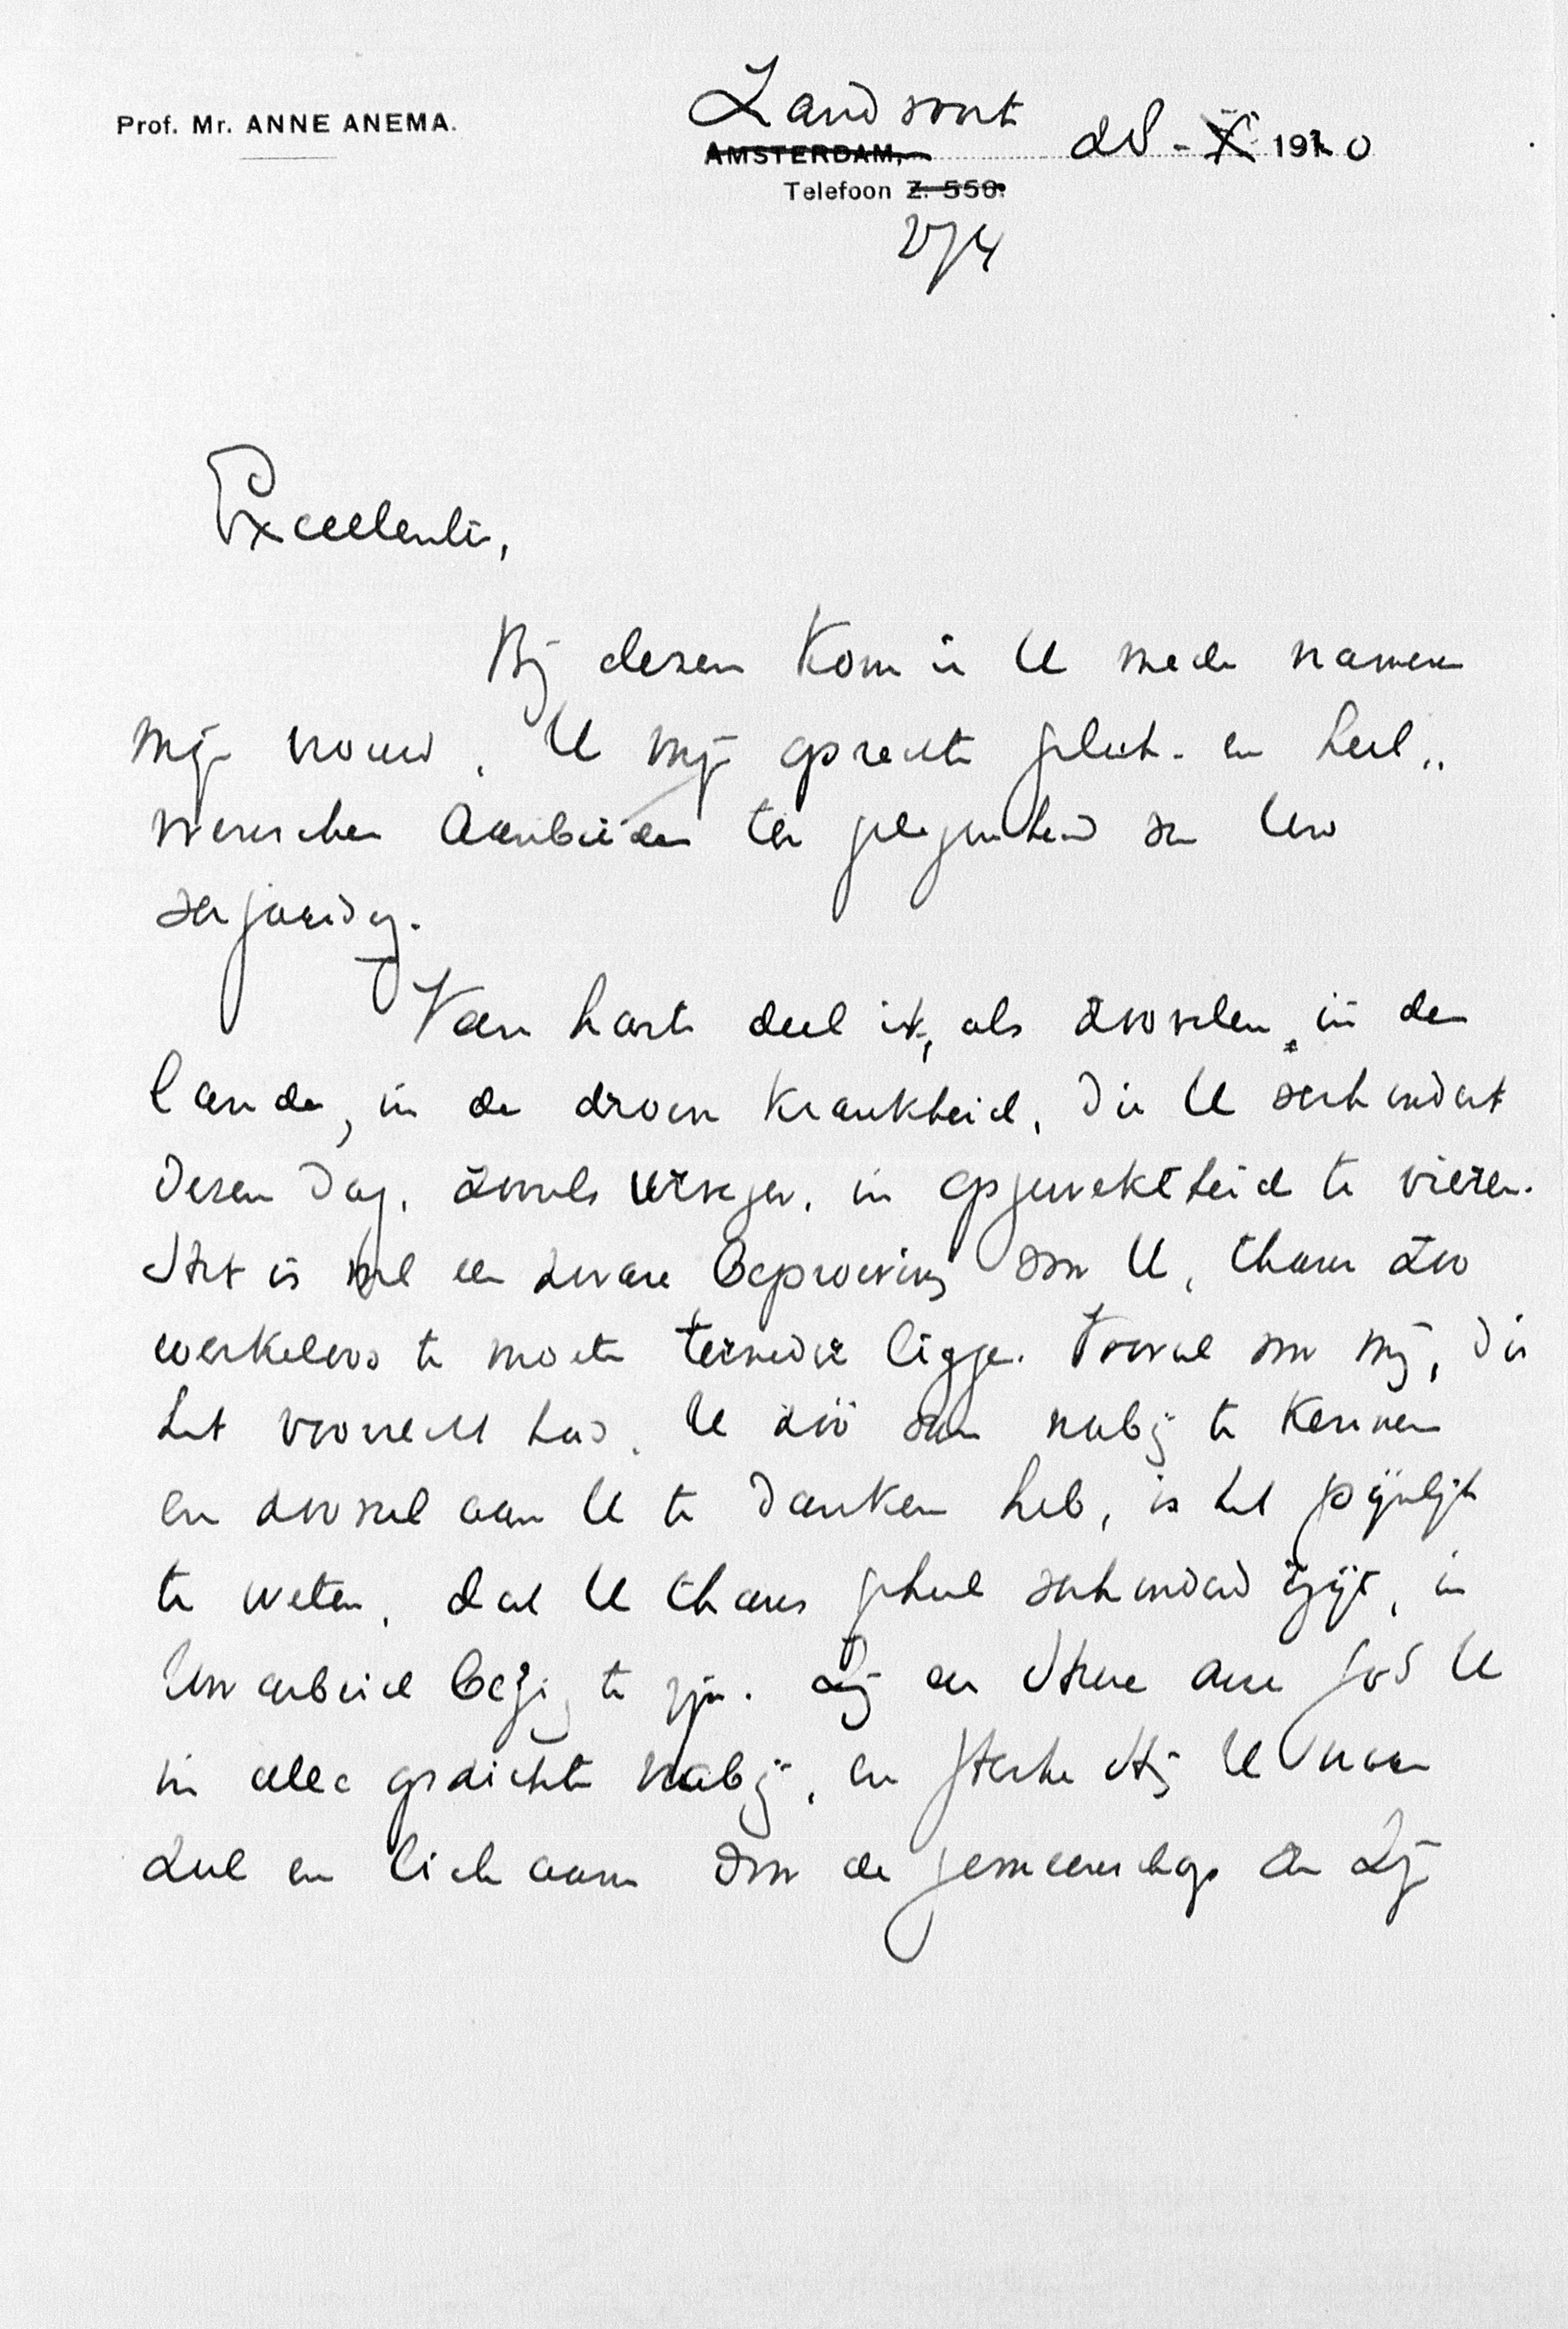 Prof. Mr. ANNE ANEMA.
Zandvoort
AMSTERDAM, 28-X 1920
Telefoon Z. 550.
274
Excellentie,
Bij dezen kom ik U mede namens
mijn vrouw, U mijn oprechte geluk- en heil„
wenschen aanbieden ter gelegenheid van Uw
verjaardag.
Van harte deel ik, als zoovelen in den
lande, in de droeve krankheid, die U verhindert
dezen dag, zooals vroeger, in opgewektheid te vieren.
Het is wel een zware beproeving voor U, thans zoo
werkeloos te moeten terneder liggen. Vooral voor mij, die
het voorrecht had, U zoo van nabij te kennen
en zooveel aan U te danken heb, is het pijnlijk
te weten, dat U thans geheel verhinderd zijt, in
Uw arbeid bezig te zijn. Zij de Heere onze God U
in alle opzichten nabij, en sterke Hij U naar
ziel en lichaam door de gemeenschap aan Zijn